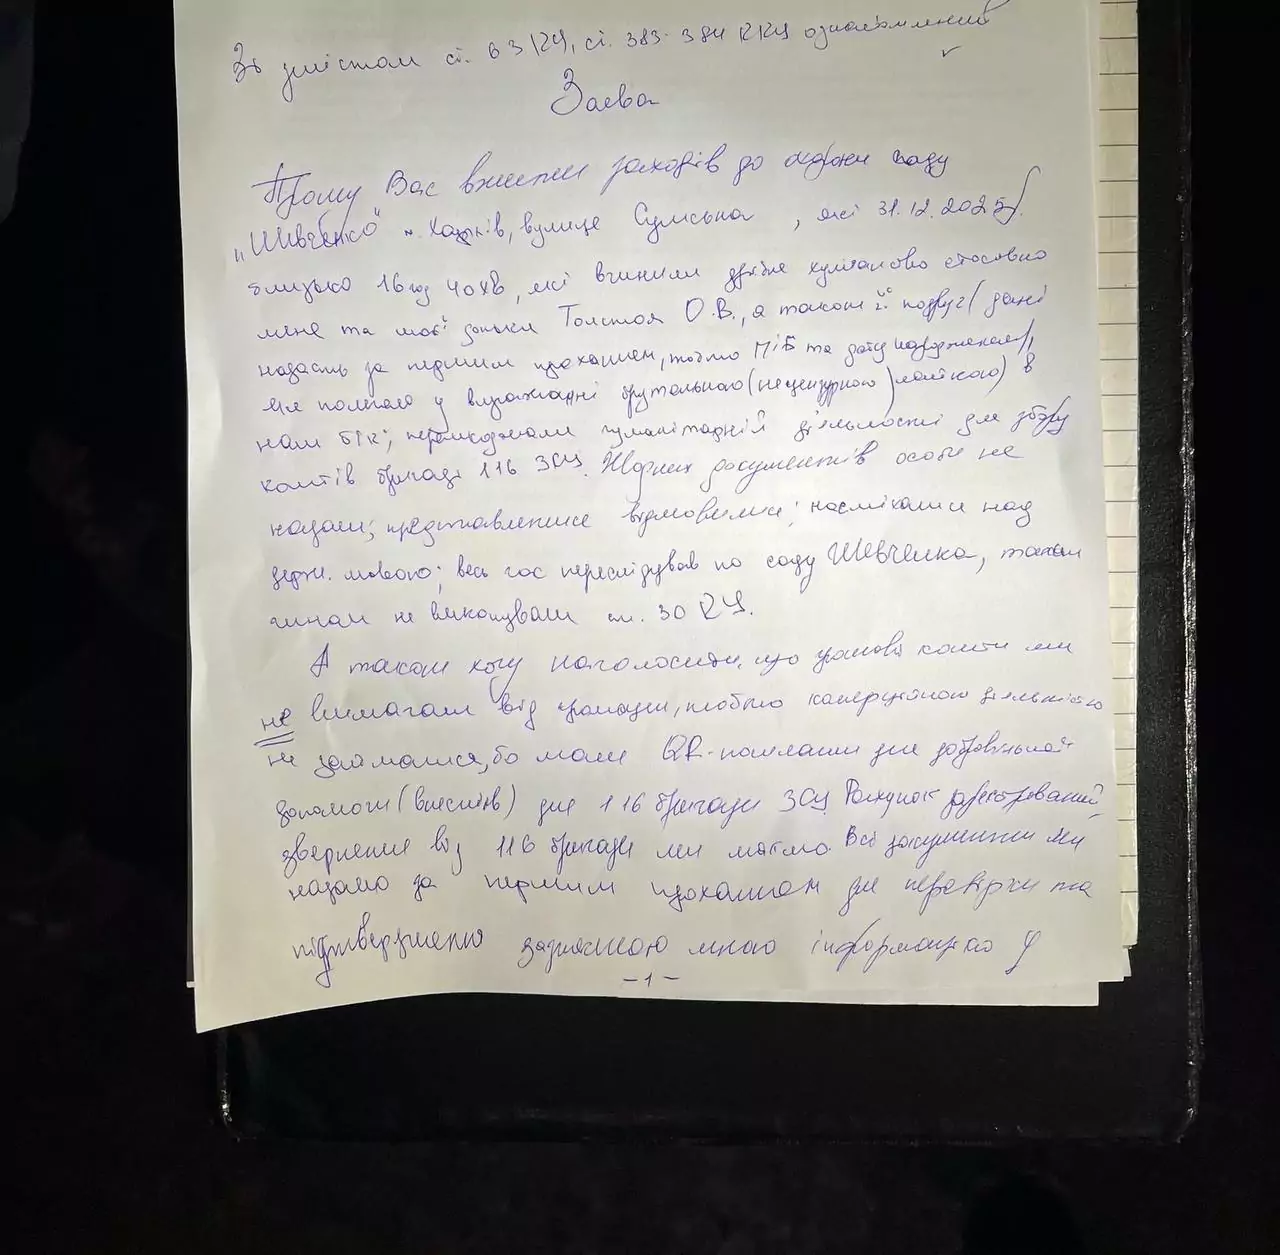 Зі змістом ст. 63 КУ, ст. 383-384 ККУ ознайомлений
Заява
Прошу Вас вжити заходів до охорони саду
"Шевченко" м. Харків, вулиця Сумська, які 31.12.2025р.
близько 16 год 40 хв, які вчинили дрібне хуліганство стосовно
мене та моєї доньки Толстоя О.В., а також її подруг (дані
надасть за першим проханням, тобто ПІБ та дату народження),
що полягало у вираженні брутальною (нецензурною) лайкою) в
наш бік; перешкоджали гуманітарній діяльності для збору
коштів бригаді 116 ЗСУ. Жодних документів особи не
надали; представлятися відмовились; насміхалися над
держ. мовою; весь час переслідував по саду Шевченка, таким
чином не виконували ст. 30 КУ.
А також хочу наголосити, що грошові кошти ми
не вимагали від громадян, тобто комерційною діяльністю
не займалися, бо мали QR-посилання для добровільної
допомоги (внесків) для 116 бригади ЗСУ. Рахунок зареєстрований,
звернення від 116 бригади ми маємо. Всі документи ми
надамо за першим проханням для перевірки та
підтвердження зазначеною мною інформацією у
-1-